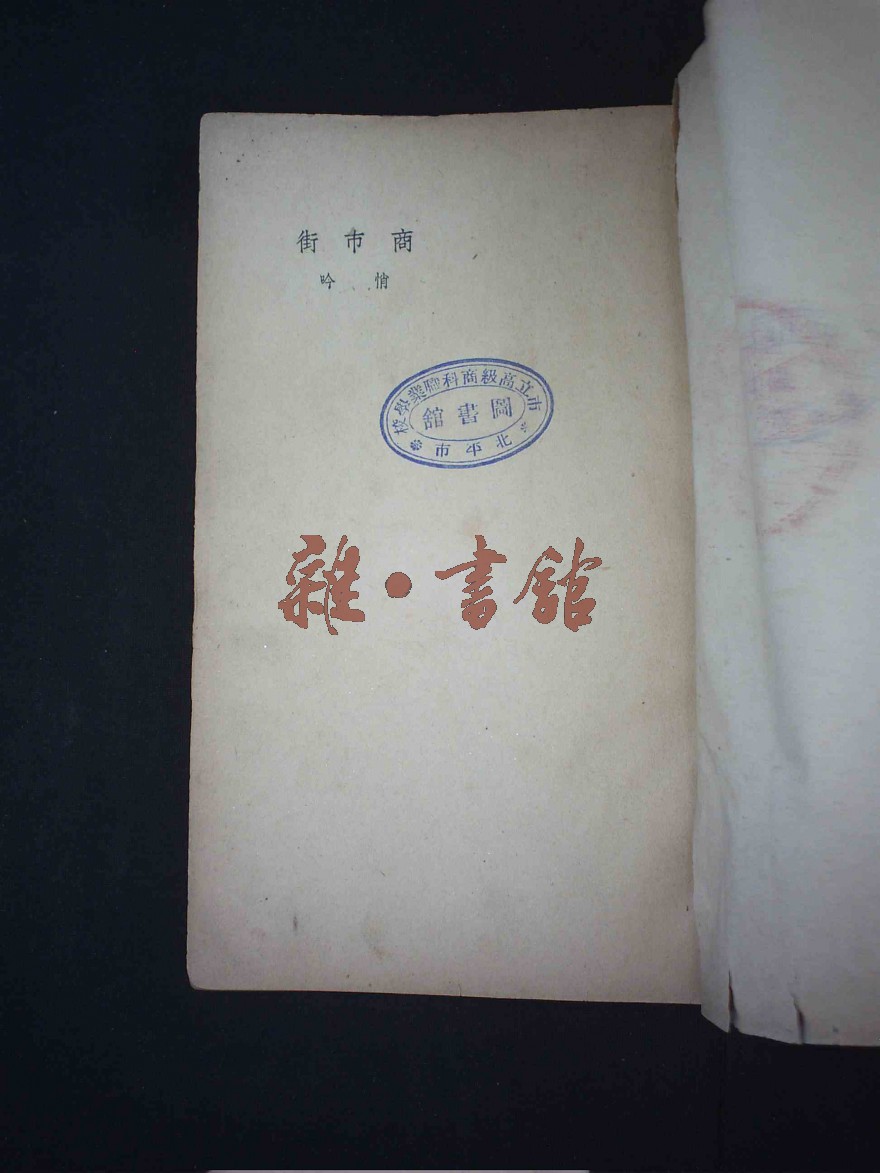 商市街
悄吟
市立高級商科職業學校
圖書館
北平市
雜·書館